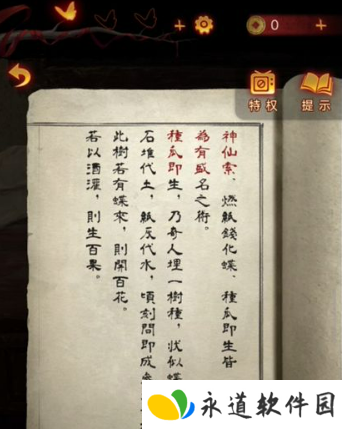 0
特权
提示
神仙索、燃紙錢化蝶、種瓜即生皆
為有盛名之術。
種瓜即生，乃奇人埋一樹種，狀似蝶
石堆代土，紙灰代水，頃刻間即成
此樹若有蝶來，則開百花。
若以酒灌，則生百果。
永道软件园